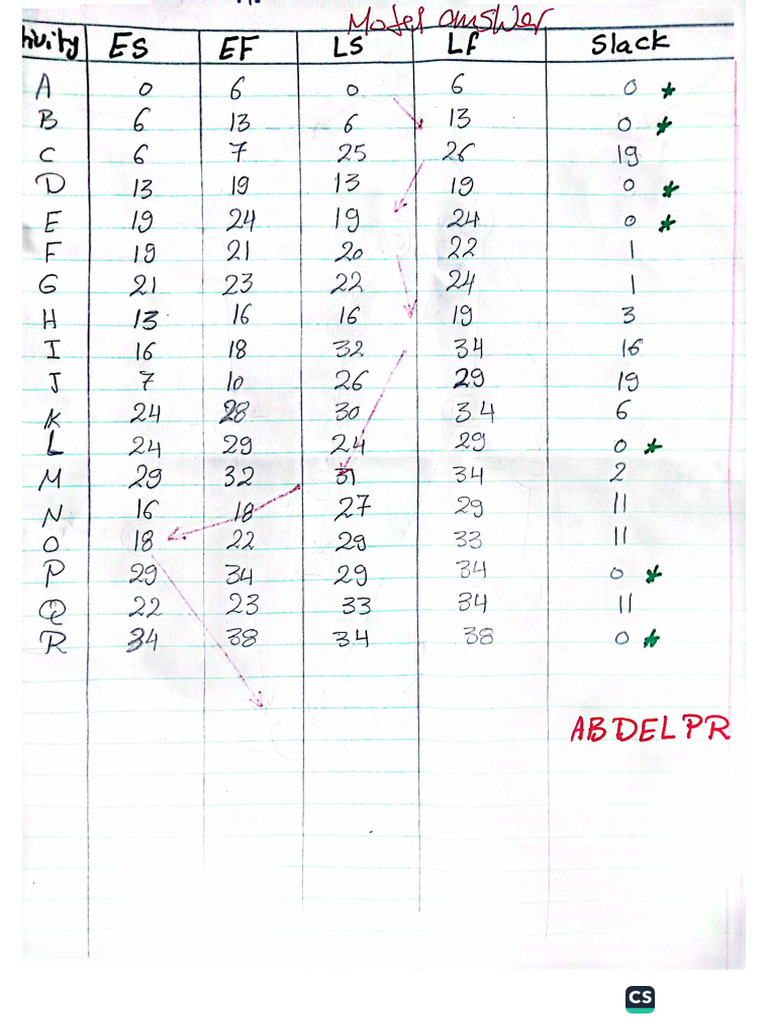 Model answer
tivity ES EF LS LF Slack
A 0 6 0 6 0 *
B 6 13 6 13 0 *
C 6 7 25 26 19
D 13 19 13 19 0 *
E 19 24 19 24 0 *
F 19 21 20 22 1
G 21 23 22 24 1
H 13 16 16 19 3
I 16 18 32 34 16
J 7 10 26 29 19
K 24 28 30 34 6
L 24 29 24 29 0 *
M 29 32 31 34 2
N 16 18 27 29 11
O 18 22 29 33 11
P 29 34 29 34 0 *
Q 22 23 33 34 11
R 34 38 34 38 0 *
ABDELPR
CS